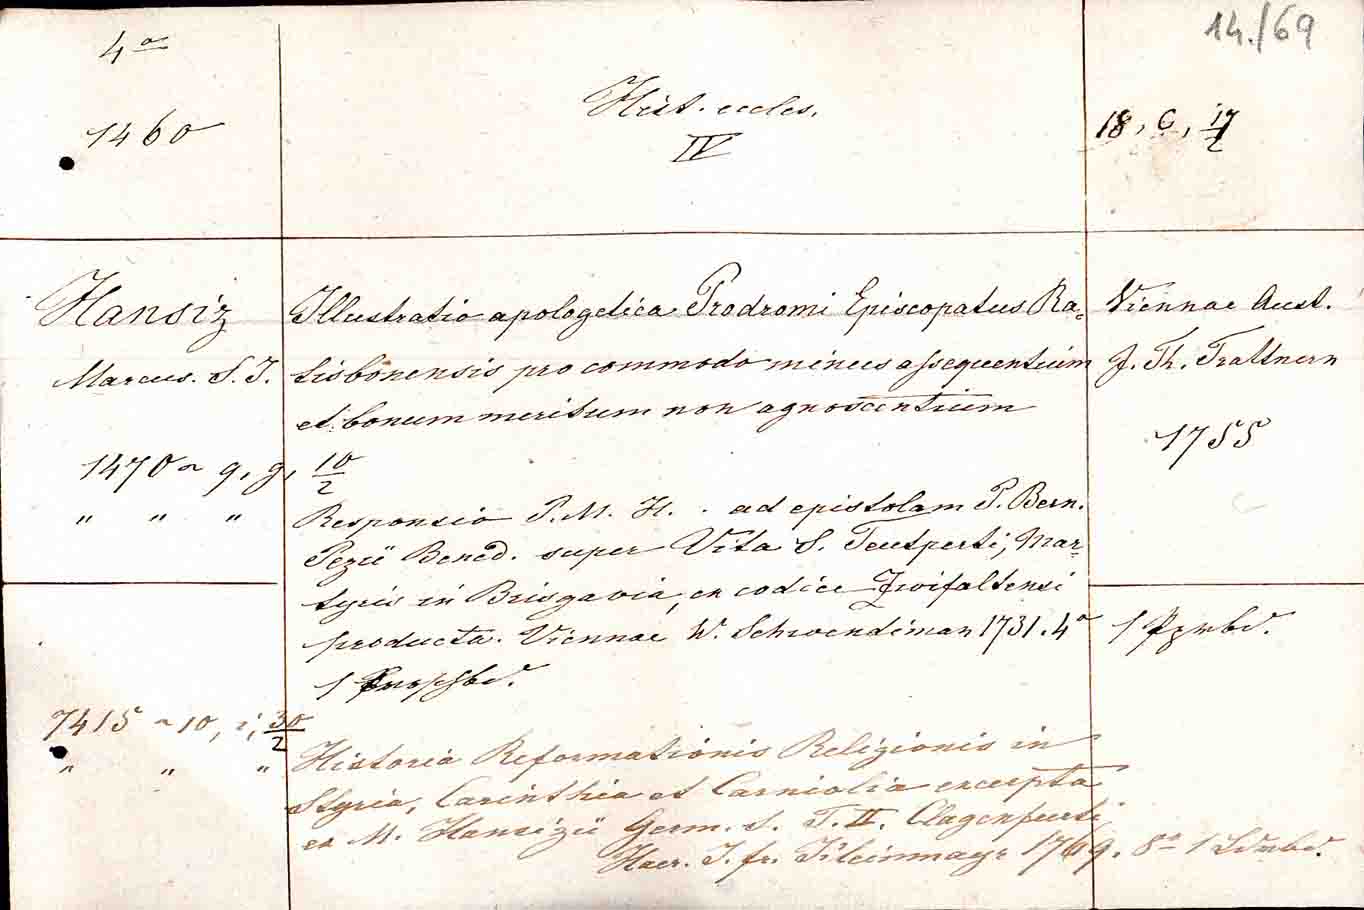 14./69
4º
Hist. eccles.
1460
IV
18, C, 17/2
Hansiz
Illustratio apologetica Prodromi Episcopatus Ra=
Viennae Aust.
Marcus. S. J.
tisbonensis pro commodo minus assequentium
J. Th. Trattnern
et bonum meritum non agnoscentium
1755
1470 ~ 9, g, 10/2
" " "
Responsio P. M. H. . ad epistolam P. Bern.
Pezii Bened. super Vita S. Teutperti, Mar=
tyris in Brisgavia, ex codice Zwifaltensi
producta. Viennae W. Schwendiman 1731. 4º
1 Pprbd.
1
7415 ~ 10, i, 30/2
" " "
Historia Reformationis Religionis in
Styria, Carinthia et Carniolia excerpta
ex M. Hansizii Germ. s. T. II. Clagenfurti,
Haer. J. fr. Kleinmayr 1769. 8º 1